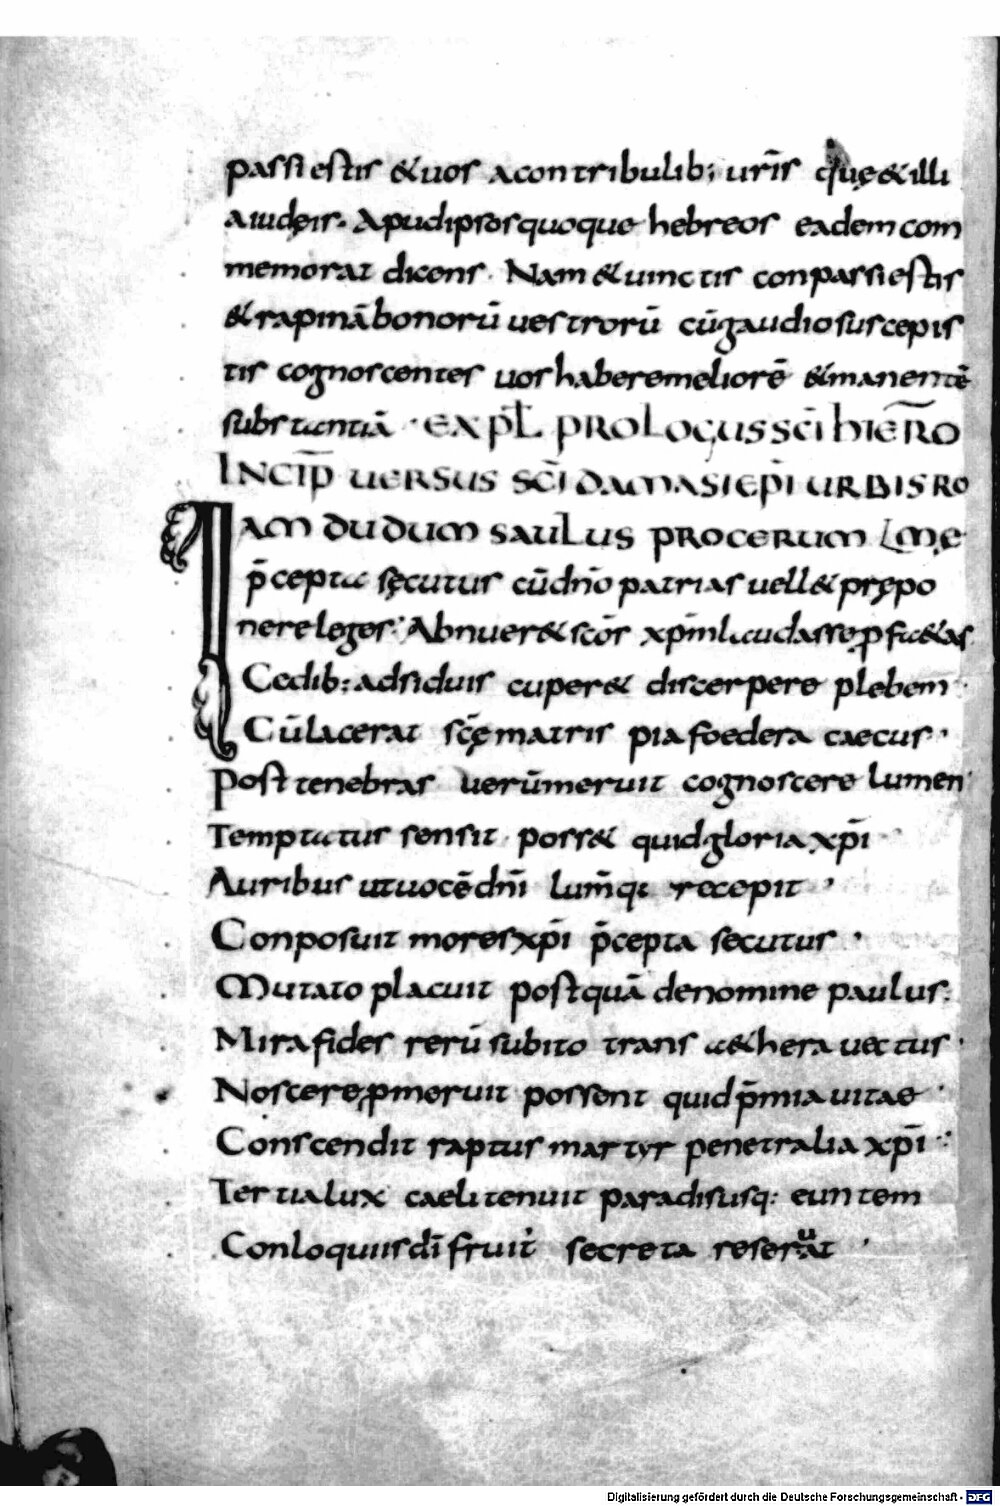 passi estis & uos a contribulib; urīs quę & illi
a iudęis. Apud ipsos quoque hebreos eadem com
memorat dicens. Nam & uinctis conpassi estis
& rapinā bonorū uestrorū cū gaudio suscepis
tis cognoscentes uos habere meliorē & manentē
substantiā. EXPL̄ PROLOGUS SC̄I HIERŌ
INCIP̄ UERSUS SC̄I DAMASI EP̄I URBIS RO
IAM DUDUM SAULUS PROCERUM
p̄cepta sęcutus cū dn̄o patrias uell& prępo
nere leges. Abnuer& sc̄os xp̄m laudasse
Cedib: adsiduis cuper& discerpere plebem
Cū lacerat sc̄ę matris pia foedera caecus.
Post tenebras uerū meruit cognoscere lumen
Temptatus sensit poss& quid gloria xp̄i
Auribus ut uocē dn̄i lum̄q; recepit
Conposuit mores xp̄i p̄cepta secutus
Mutato placuit postquā de nomine paulus.
Mira fides rerū subito trans a&hera uectus.
Noscere p meruit possent quid p̄mia uitae
Conscendit raptus martyr penetralia xp̄i
Tertia lux caeli tenuit paradisusq: euntem
Conloquiis dī fruit secreta reseruat
Digitalisierung gefördert durch die Deutsche Forschungsgemeinschaft - DFG